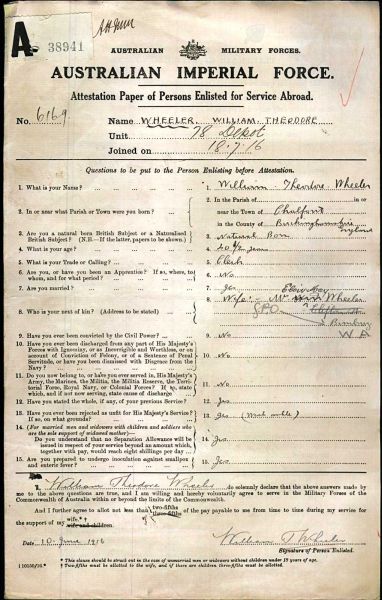 A 38941
AUSTRALIAN MILITARY FORCES.
AUSTRALIAN IMPERIAL FORCE.
Attestation Paper of Persons Enlisted for Service Abroad.
No. 6169 Name WHEELER, WILLIAM THEODORE
Unit 78 Depot
Joined on 18.7.16
Questions to be put to the Person Enlisting before Attestation.
1. What is your Name? 1. William Theodore Wheeler
2. In or near what Parish or Town were you born? 2. In the Parish of
near the Town of Chalfont
in the County of Buckinghamshire
3. Are you a natural born British Subject or a Naturalised
British Subject? (N.B.—If the latter, papers to be shown) 3. Natural Born
4. What is your age? 4.
5. What is your Trade or Calling? 5. Clerk
6. Are you, or have you been an Apprentice? If so, where, to
whom, and for what period? 6. No
7. Are you married? 7. Yes
8. Who is your next of kin? (Address to be stated) 8. Wife:- Mrs Wheeler
G.P.O.
Bunbury
W.A
9. Have you ever been convicted by the Civil Power? 9. No
10. Have you ever been discharged from any part of His Majesty's
Forces with Ignominy, or as Incorrigible and Worthless, or on
account of Conviction of Felony, or of a Sentence of Penal
Servitude, or have you been dismissed with Disgrace from the
Navy?
11. Do you now belong to, or have you ever served in, His Majesty's
Army, the Marines, the Militia, the Militia Reserve, the Territorial
Force, Royal Navy, or Colonial Forces? If so, state
which, and if not now serving, state cause of discharge 11. No
12. Have you stated the whole, if any, of your previous Service? 12. Yes
13. Have you ever been rejected as unfit for His Majesty's Service?
If so, on what grounds? 13. Yes
14. (For married men and widowers with children and soldiers who
are the sole support of widowed mother)—
Do you understand that no Separation Allowance will be
issued in respect of your service beyond an amount which,
together with pay, would reach eight shillings per day 14. Yes
15. Are you prepared to undergo inoculation against smallpox
and enteric fever? 15. Yes
I, William Theodore Wheeler do solemnly declare that the above answers made by
me to the above questions are true, and I am willing and hereby voluntarily agree to serve in the Military Forces of the
Commonwealth of Australia within or beyond the limits of the Commonwealth.
And I further agree to allot not less than two-fifths three-fifths of the pay payable to me from time to time during my service for
the support of my wife.* wife and children.
Date 10 June 1916 William T Wheeler
Signature of Person Enlisted.
* This clause should be struck out in the case of unmarried men or widowers without children under 18 years of age.
† Two-fifths must be allotted to the wife, and if there are children three-fifths must be allotted.